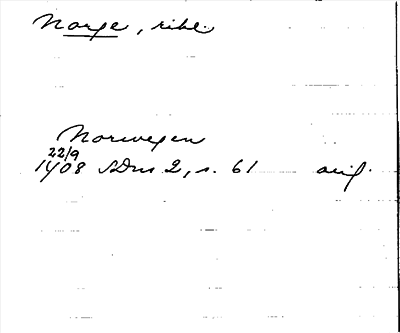 Norge, rike.
Norwegen
22/9
1408 SDns 2, s. 61 orig.